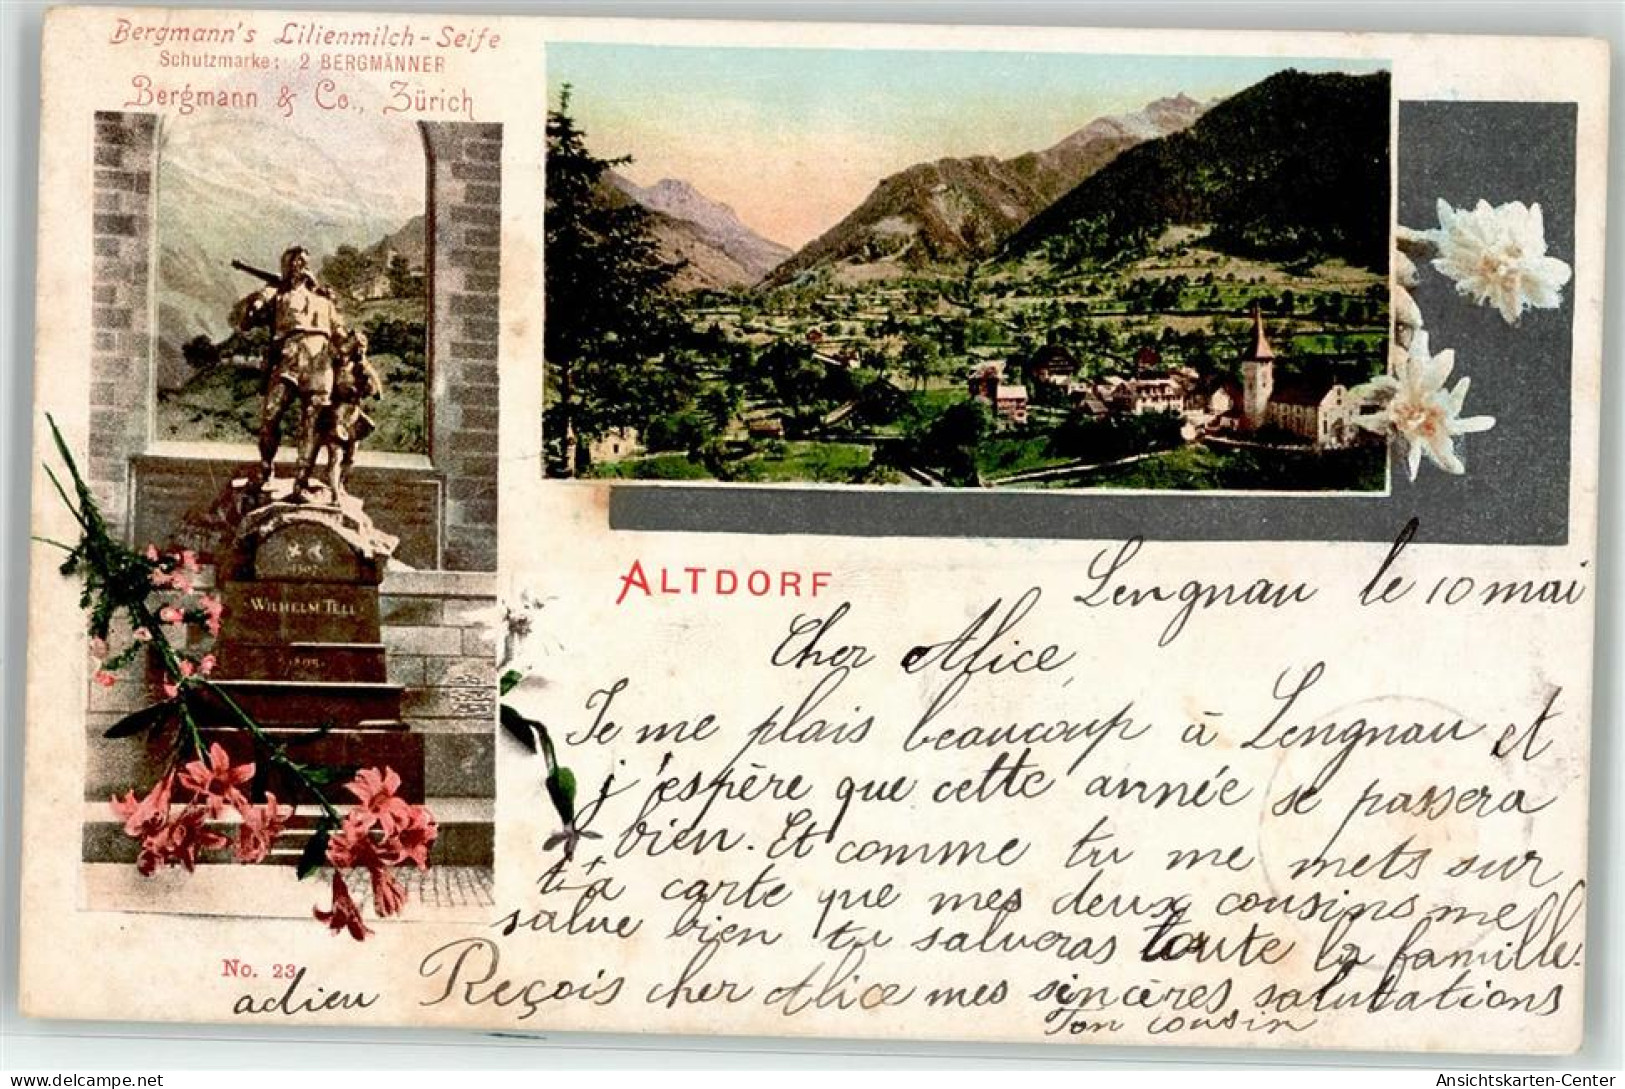 Bergmann's Lilienmilch-Seife
Schutzmarke: 2 BERGMÄNNER
Bergmann & Co., Zürich
1307
WILHELM TELL
1895
ALTDORF
No. 23
Lengnau le 10 mai
Cher Alice,
Je me plais beaucoup à Lengnau et
j'espère que cette année se passera
bien. Et comme tu me mets sur
ta carte que mes deux cousins me
salue bien tu salueras toute la famille.
adieu Reçois cher Alice mes sincères salutations
Ton cousin
Ansichtskarten-Center